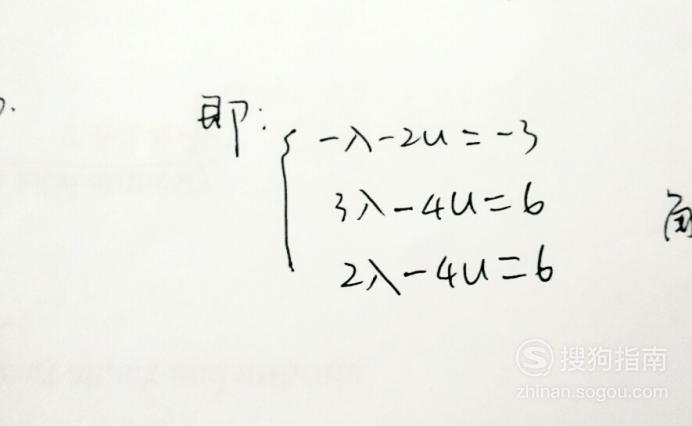 即:
-λ-2u=-3
3λ-4u=6
2λ-4u=6
搜狗指南
zhinan.sogou.com